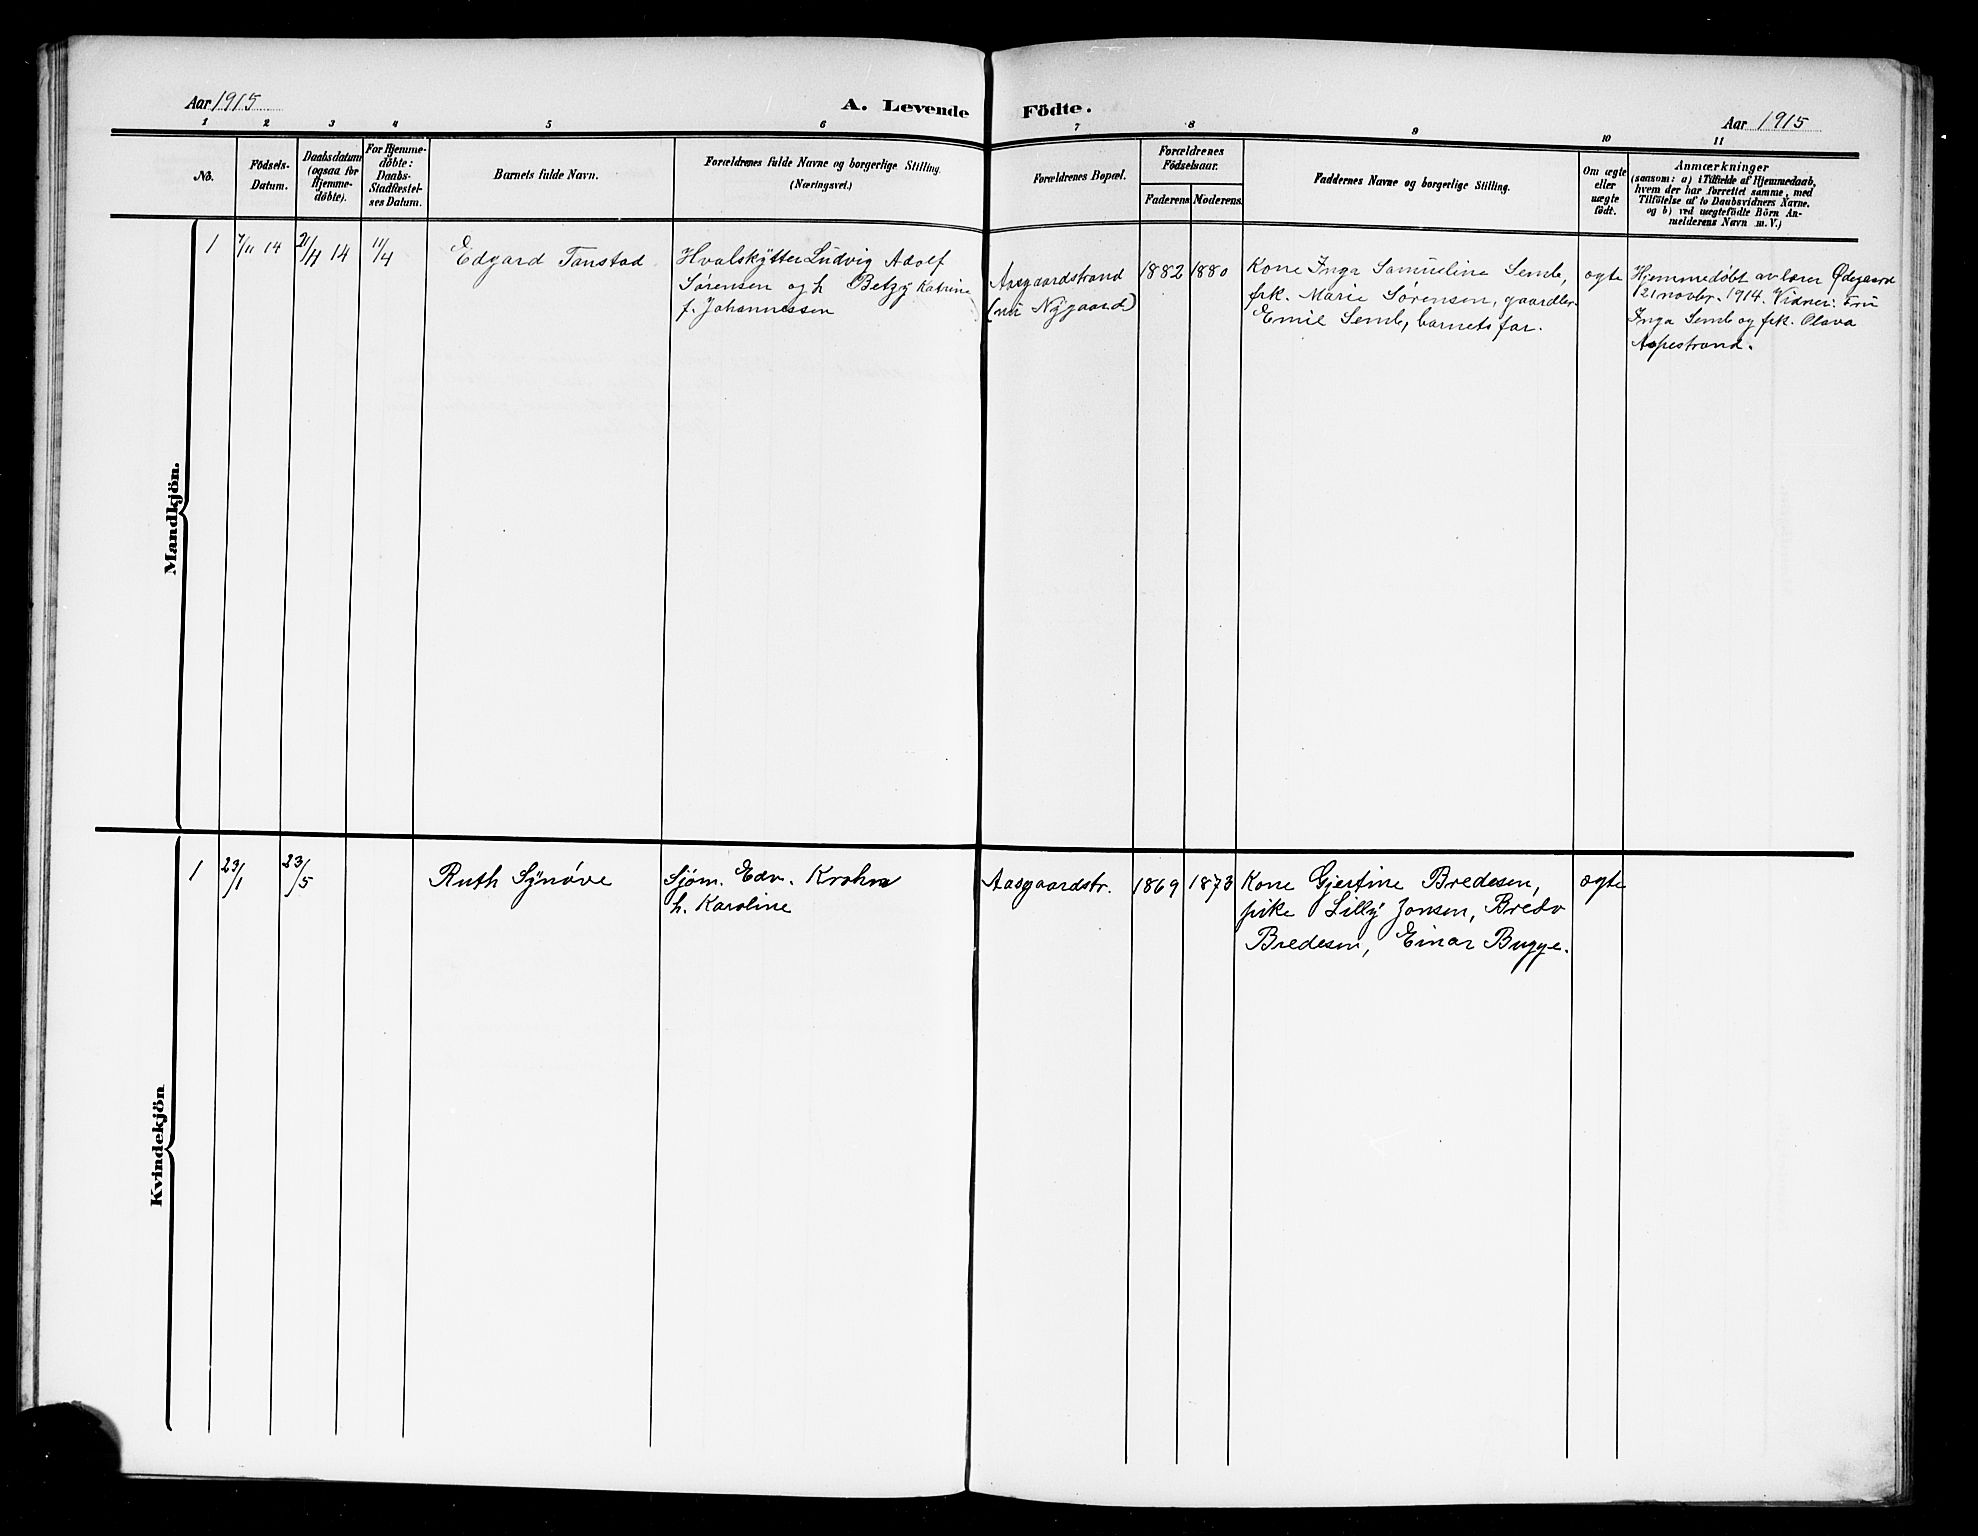 Aar 1915
A. Levende Födte.
Aar 1915
1 2 3 4 5 6 7 8 9 10 11
No.
Födsels-
Datum.
Daabsdatum
(ogsaa for
Hjemme-
döbte).
For Hjemme-
döbte:
Daabs-
Stadfæstel-
ses Datum.
Barnets fulde Navn.
Forældrenes fulde Navne og borgerlige Stilling.
(Næringsvei.)
Forældrenes Bopæl.
Forældrenes
Födselsaar.
Faderens Moderens.
Faddernes Navne og borgerlige Stilling.
Om ægte
eller
uægte
födt.
Anmærkninger
(saasom: a) i Tilfælde af Hjemmedaab,
hvem der har forrettet samme, med
Tilföielse af to Daabsvidners Navne,
og b) ved uægtefödte Börn An-
melderens Navn m. V.)
Mandkjön.
1
7/11 14
21/11 14
11/4
Edgard Tanstad
Hvalskytter Ludvig Adolf
Sørensen og h Betzy Katrine
f. Johannessen
Aasgaardstrand
(nu Nygaard)
1882 1880
Kone Inga Samueline Semb,
frk. Marie Sørensen, gaardbr.
Emil Semb, barnets far.
ægte
Hjemmedøbt av lærer Ødegaard
21 novbr. 1914. Vidner: Fru
Inga Semb og frk. Olava
Aspestrand.
Kvindekjön
1
23/1
23/5
Ruth Synøve
Sjøm. Edv. Krohn
h. Karoline
Aasgaardstr.
1869 1873
Kone Gjertine Bredesen,
pike Lilly Jonsen, Bredo
Bredesen, Einar Bugge.
ægte